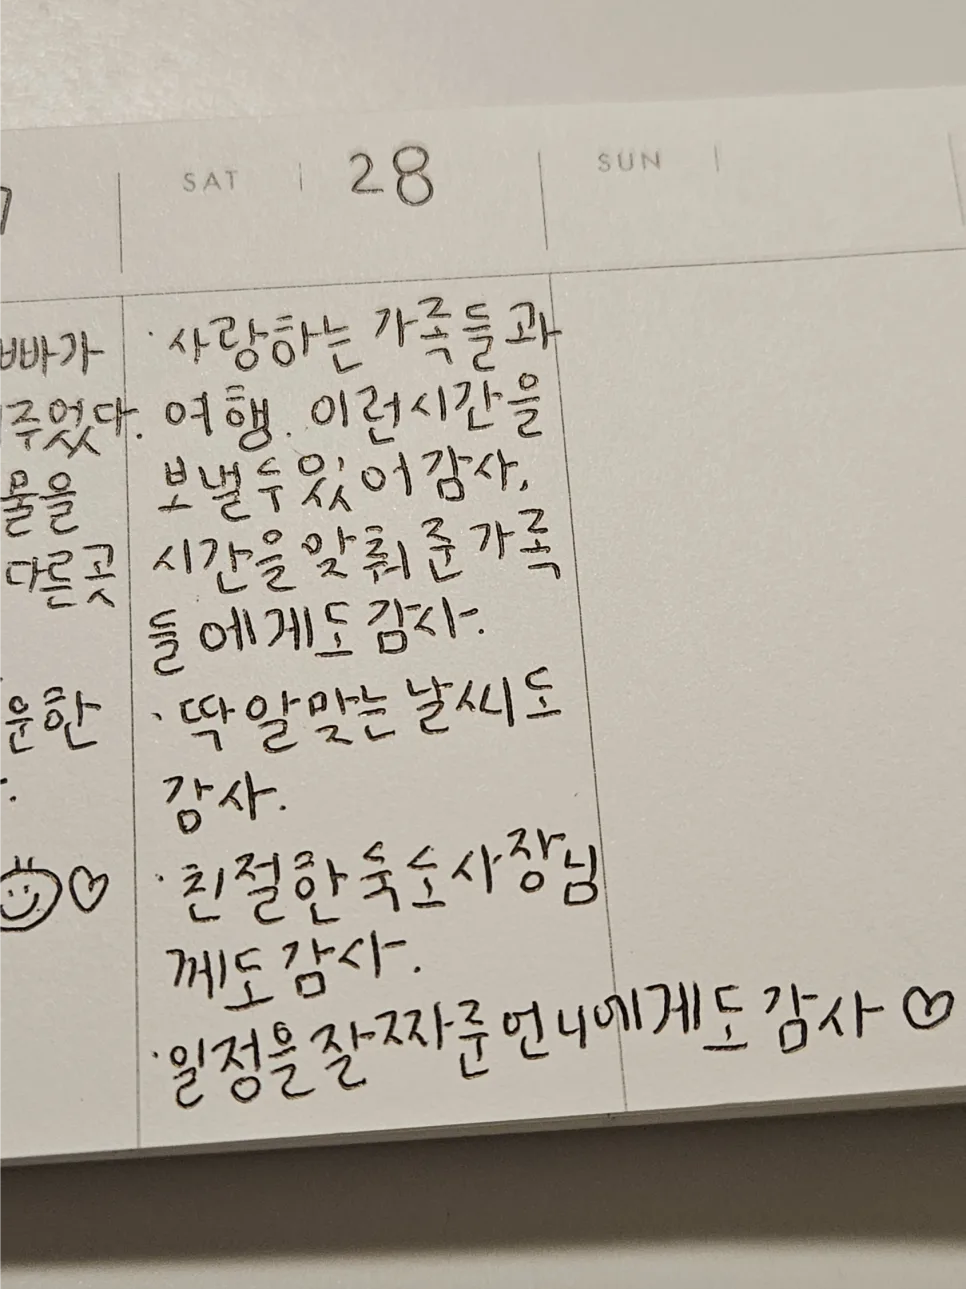 SAT | 28
SUN |
빠가
주었다.
물을
다른곳
운한
· 사랑하는 가족들과
여행. 이런시간을
보낼수있어감사,
시간을맞춰준가족
들에게도감사.
· 딱알맞는날씨도
감사.
· 친절한숙소사장님
께도감사.
· 일정을잘짜준언니에게도감사♡